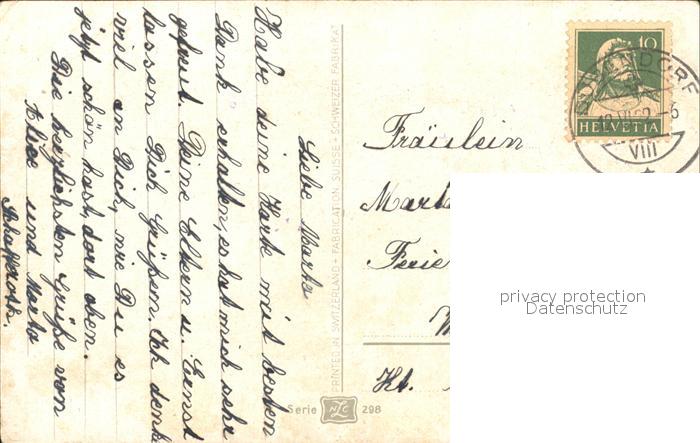 Liebe Marta
Habe deine Karte mit besten
Dank erhalten, es hat mich sehr
gefreut. Deine Eltern u. Ernst
lassen Dich Grüßen. Ich denke
viel an Dich, wie Du es
jetzt schön hast, dort oben.
Die herzlichsten Grüße von
Alice und Marta
Fräulein
Marta
Ferie
Kt.
10
HELVETIA
VIII
PRINTED IN SWITZERLAND • FABRICATION SUISSE • SCHWEIZER FABRIKAT
Serie NLC 298
privacy protection
Datenschutz